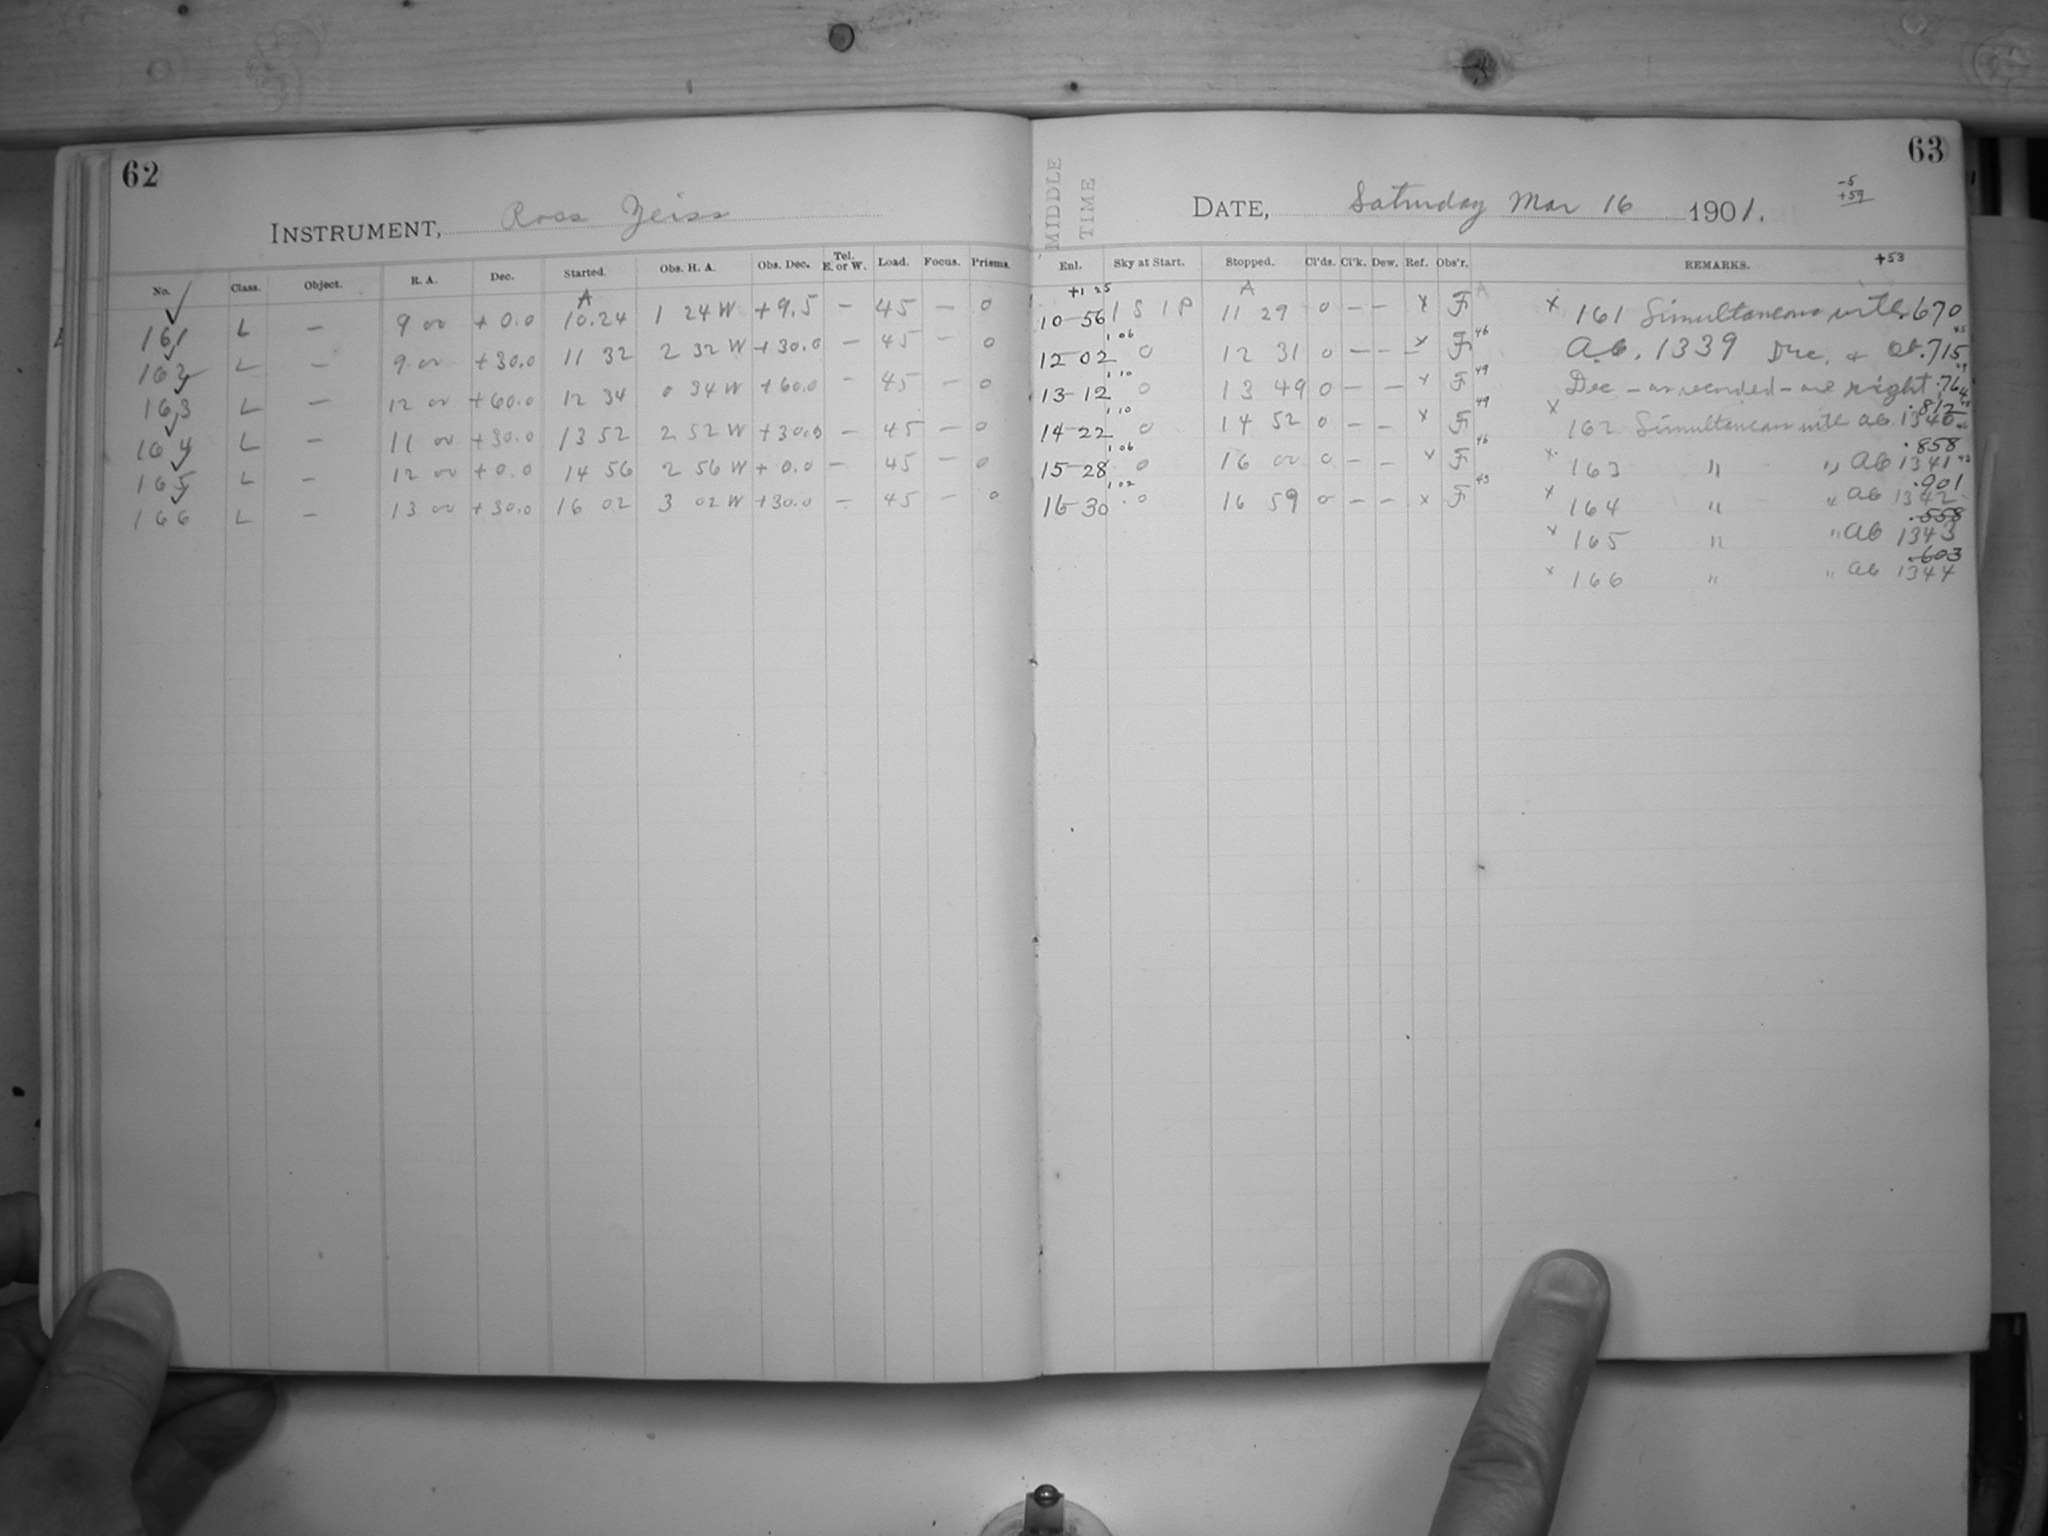 62
INSTRUMENT, Ross Zeiss
No. Class. Object. R. A. Dec. Started. Obs. H. A. Obs. Dec. Tel. E. or W. Load. Focus. Prisms.
A
161 L — 9 00 +0.0 10.24 1 24 W +9.5 — 45 — 0
162 L — 9 00 +30.0 11 32 2 32 W +30.0 — 45 — 0
163 L — 12 00 +60.0 12 34 0 34 W +60.0 — 45 — 0
164 L — 11 00 +30.0 13 52 2 52 W +30.0 — 45 — 0
165 L — 12 00 +0.0 14 56 2 56 W +0.0 — 45 — 0
166 L — 13 00 +30.0 16 02 3 02 W +30.0 — 45 — 0
63
MIDDLE TIME
DATE, Saturday Mar 16 1901.
-5
+59
+53
Enl. Sky at Start. Stopped. Cl'ds. Cl'k. Dew. Ref. Obs'r. REMARKS.
+1 25 A
10-56 1 S 1 P 11 29 0 — — x F x 161 Simultaneous with .670
1 06 46
12-02 0 12 31 0 — — — x F AC. 1339 Dec. & Ob. .715
1 10 49
13-12 0 13 49 0 — — x F Dec — as recorded — are right .764
1 10 49
14-22 0 14 52 0 — — x F x 162 Simultaneous with AC 1340 .812
1 06 46
15-28 0 16 00 0 — — x F x 163 " " AC 1341 .858
1 02 43
16-30 0 16 59 0 — — x F x 164 " " AC 1342 .901
x 165 " " AC 1343 .558
x 166 " " AC 1344 .603